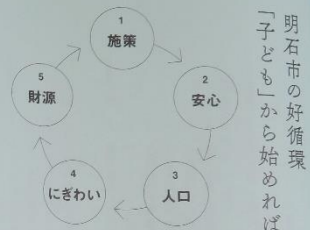 明石市の好循環
「子ども」から始めれば
1
施策
2
安心
3
人口
4
にぎわい
5
財源